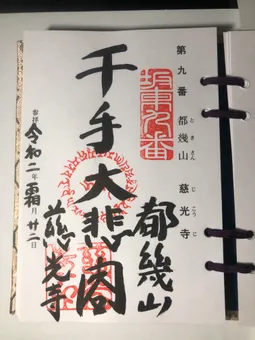 第九番 都幾山 慈光寺
ときさん じこうじ
坂東九番
都幾山
千手大悲閣
慈光寺
参拝 令和二年霜月廿二日